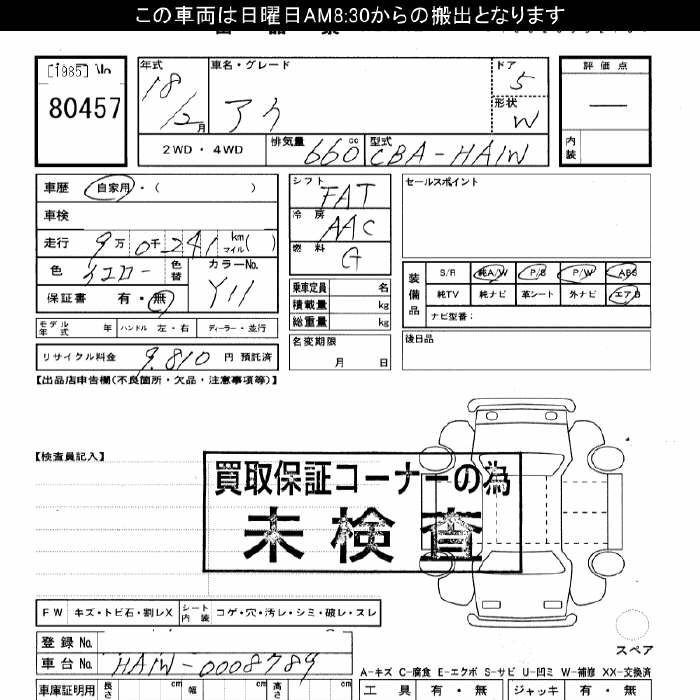 この車両は日曜日AM8:30からの搬出となります
[1985] No
80457
年式 車名・グレード ドア 評価点
18 アイ 5
12月 形状 W
2WD・4WD 排気量 660 cc 型式 CBA-HA1W 内装
車歴 自家用・( )
車検
走行 9万0千241 km マイル( )
色 イエロー 色替 カラーNo. Y11
保証書 有・無
モデル年式 年 ハンドル 左・右 ディーラー・並行
リサイクル料金 9,810 円 預託済
シフト FAT
冷房 AAC
燃料 G
乗車定員 名
積載量 kg
総重量 kg
名変期限
月 日
セールスポイント
装備品 S/R 純A/W P/S P/W ABS
純TV 純ナビ 革シート 外ナビ エアB
ナビ型番:
後日品
【出品店申告欄(不良箇所・欠品・注意事項等)】
【検査員記入】
買取保証コーナーの為
未検査
FW キズ・トビ石・割レX シート内装 コゲ・穴・汚レ・シミ・破レ・スレ
スペア
登録No.
車台No. HA1W-0008789
A-キズ C-腐食 E-エクボ S-サビ U-凹ミ W-補修 XX-交換済
車庫証明用 長さ cm 幅 cm 高さ cm 工具 有・無 ジャッキ 有・無